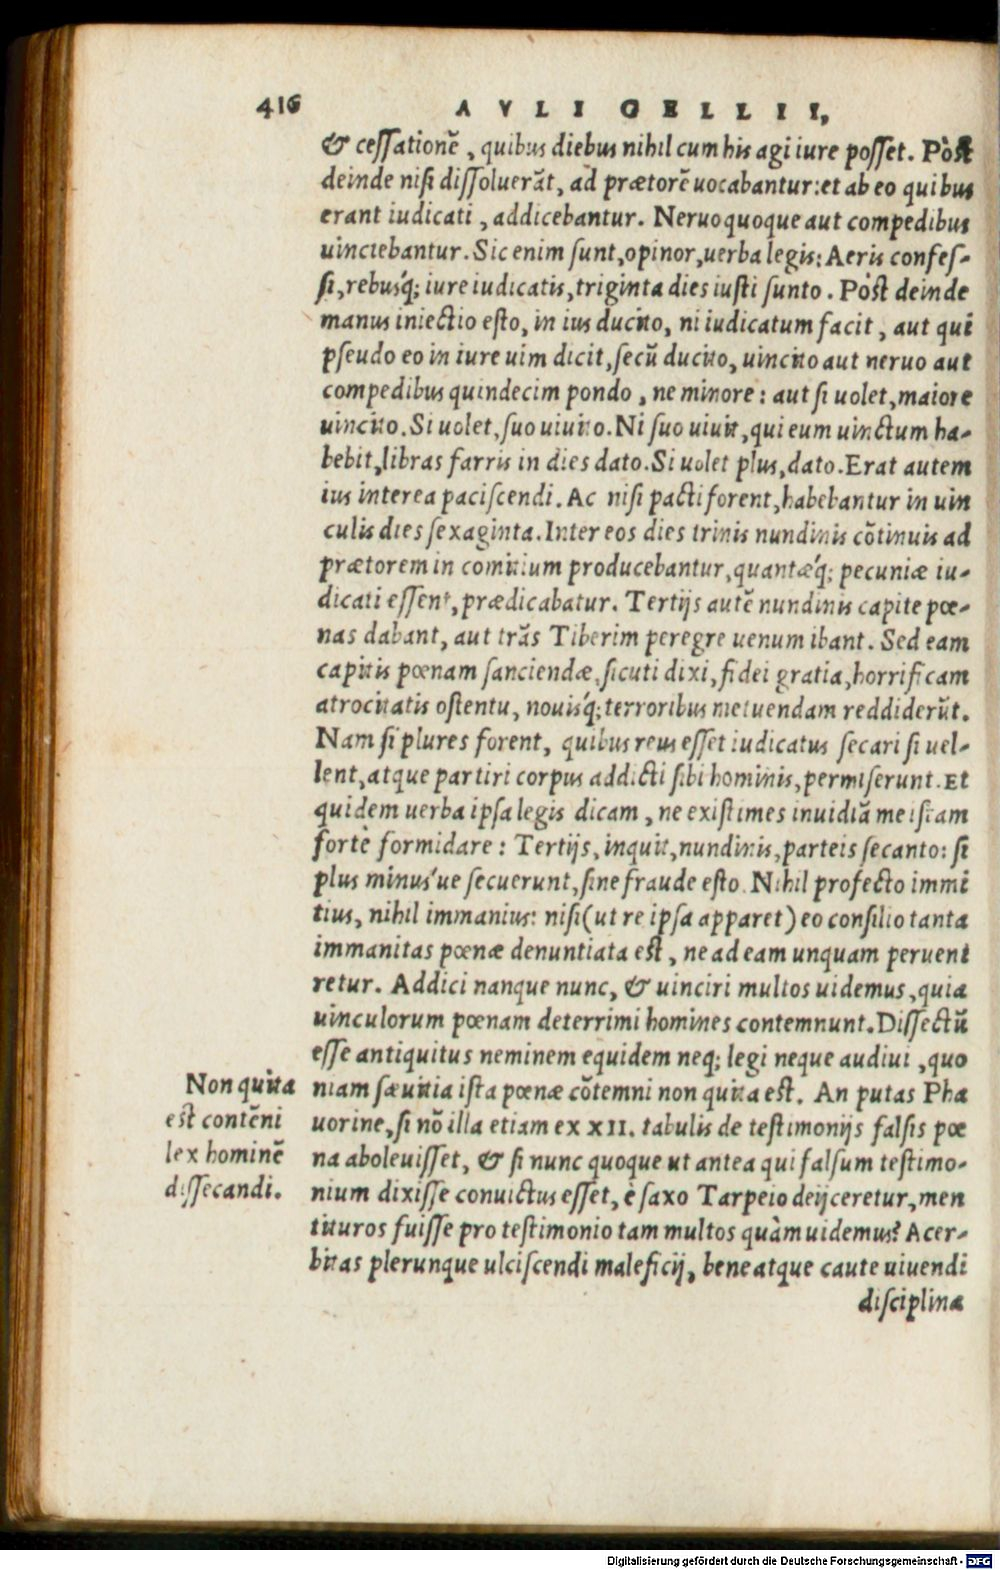 416
AVLI GELLII,
& ceſſationē, quibus diebus nihil cum his agi iure poſſet. Pòſt
deinde niſi diſſoluerāt, ad prætorē uocabantur: et ab eo quibus
erant iudicati, addicebantur. Neruo quoque aut compedibus
uinciebantur. Sic enim ſunt, opinor, uerba legis: Aeris confeſ-
ſi, rebusq́; iure iudicatis, triginta dies iuſti ſunto. Pòſt deinde
manus iniectio eſto, in ius ducito, ni iudicatum facit, aut qui
pſeudo eo in iure uim dicit, ſecū ducito, uincito aut neruo aut
compedibus quindecim pondo, ne minore: aut ſi uolet, maiore
uincito. Si uolet, ſuo uiuito. Ni ſuo uiuit, qui eum uinctum ha-
bebit, libras farris in dies dato. Si uolet plus, dato. Erat autem
ius interea paciſcendi. Ac niſi pacti forent, habebantur in uin
culis dies ſexaginta. Inter eos dies trinis nundinis cōtinuis ad
prætorem in comitium producebantur, quantæq́; pecuniæ iu-
dicati eſſent, prædicabatur. Tertijs autē nundinis capite pœ-
nas dabant, aut trās Tiberim peregre uenum ibant. Sed eam
capitis pœnam ſanciendæ, ſicuti dixi, fidei gratia, horrificam
atrocitatis oſtentu, nouisq́; terroribus metuendam reddiderūt.
Nam ſi plures forent, quibus reus eſſet iudicatus ſecari ſi uel-
lent, atque partiri corpus addicti ſibi hominis, permiſerunt. Et
quidem uerba ipſa legis dicam, ne exiſtimes inuidiā me iſtam
fortè formidare: Tertijs, inquit, nundinis, parteis ſecanto: ſi
plus minus'ue ſecuerunt, ſine fraude eſto. Nihil profecto immi
tius, nihil immanius: niſi (ut re ipſa apparet) eo conſilio tanta
immanitas pœnæ denuntiata eſt, ne ad eam unquam perueni
retur. Addici nanque nunc, & uinciri multos uidemus, quia
uinculorum pœnam deterrimi homines contemnunt. Diſſectū
eſſe antiquitus neminem equidem neq; legi neque audiui, quo
niam ſæuitia iſta pœnæ cōtemni non quita eſt. An putas Pha
uorine, ſi nō illa etiam ex XII. tabulis de teſtimonijs falſis pœ
na aboleuiſſet, & ſi nunc quoque ut antea qui falſum teſtimo-
nium dixiſſe conuictus eſſet, è ſaxo Tarpeio deijceretur, men
tituros fuiſſe pro teſtimonio tam multos quàm uidemus? Acer-
bitas plerunque ulciſcendi maleficij, bene atque caute uiuendi
diſciplina
Non quita
eſt contēni
lex hominē
diſſecandi.
Digitalisierung gefördert durch die Deutsche Forschungsgemeinschaft - DFG